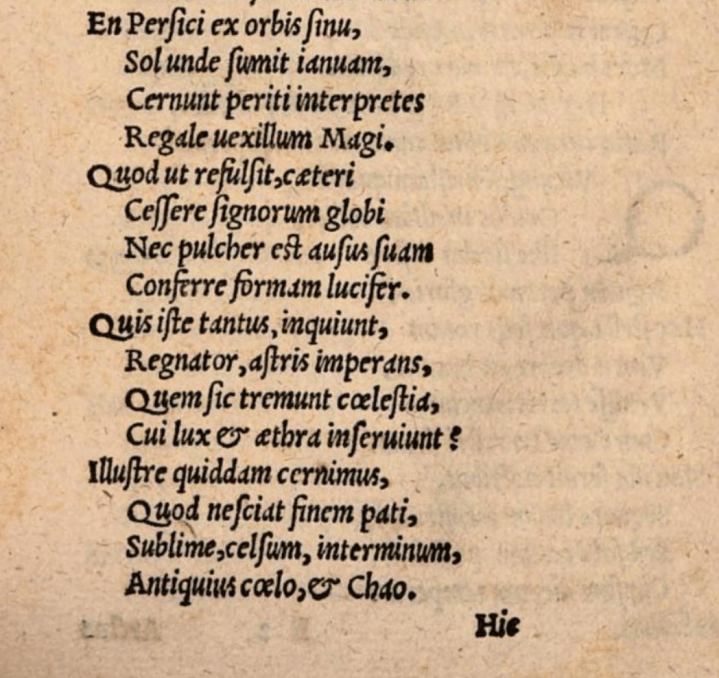 En Perſici ex orbis ſinu,
Sol unde ſumit ianuam,
Cernunt periti interpretes
Regale uexillum Magi.
Quod ut refulſit, cæteri
Ceſſere ſignorum globi
Nec pulcher eſt auſus ſuam
Conferre formam lucifer.
Quis iſte tantus, inquiunt,
Regnator, aſtris imperans,
Quem ſic tremunt cœleſtia,
Cui lux & æthra inſeruiunt?
Illuſtre quiddam cernimus,
Quod neſciat finem pati,
Sublime, celſum, interminum,
Antiquius cœlo, & Chao.
Hic